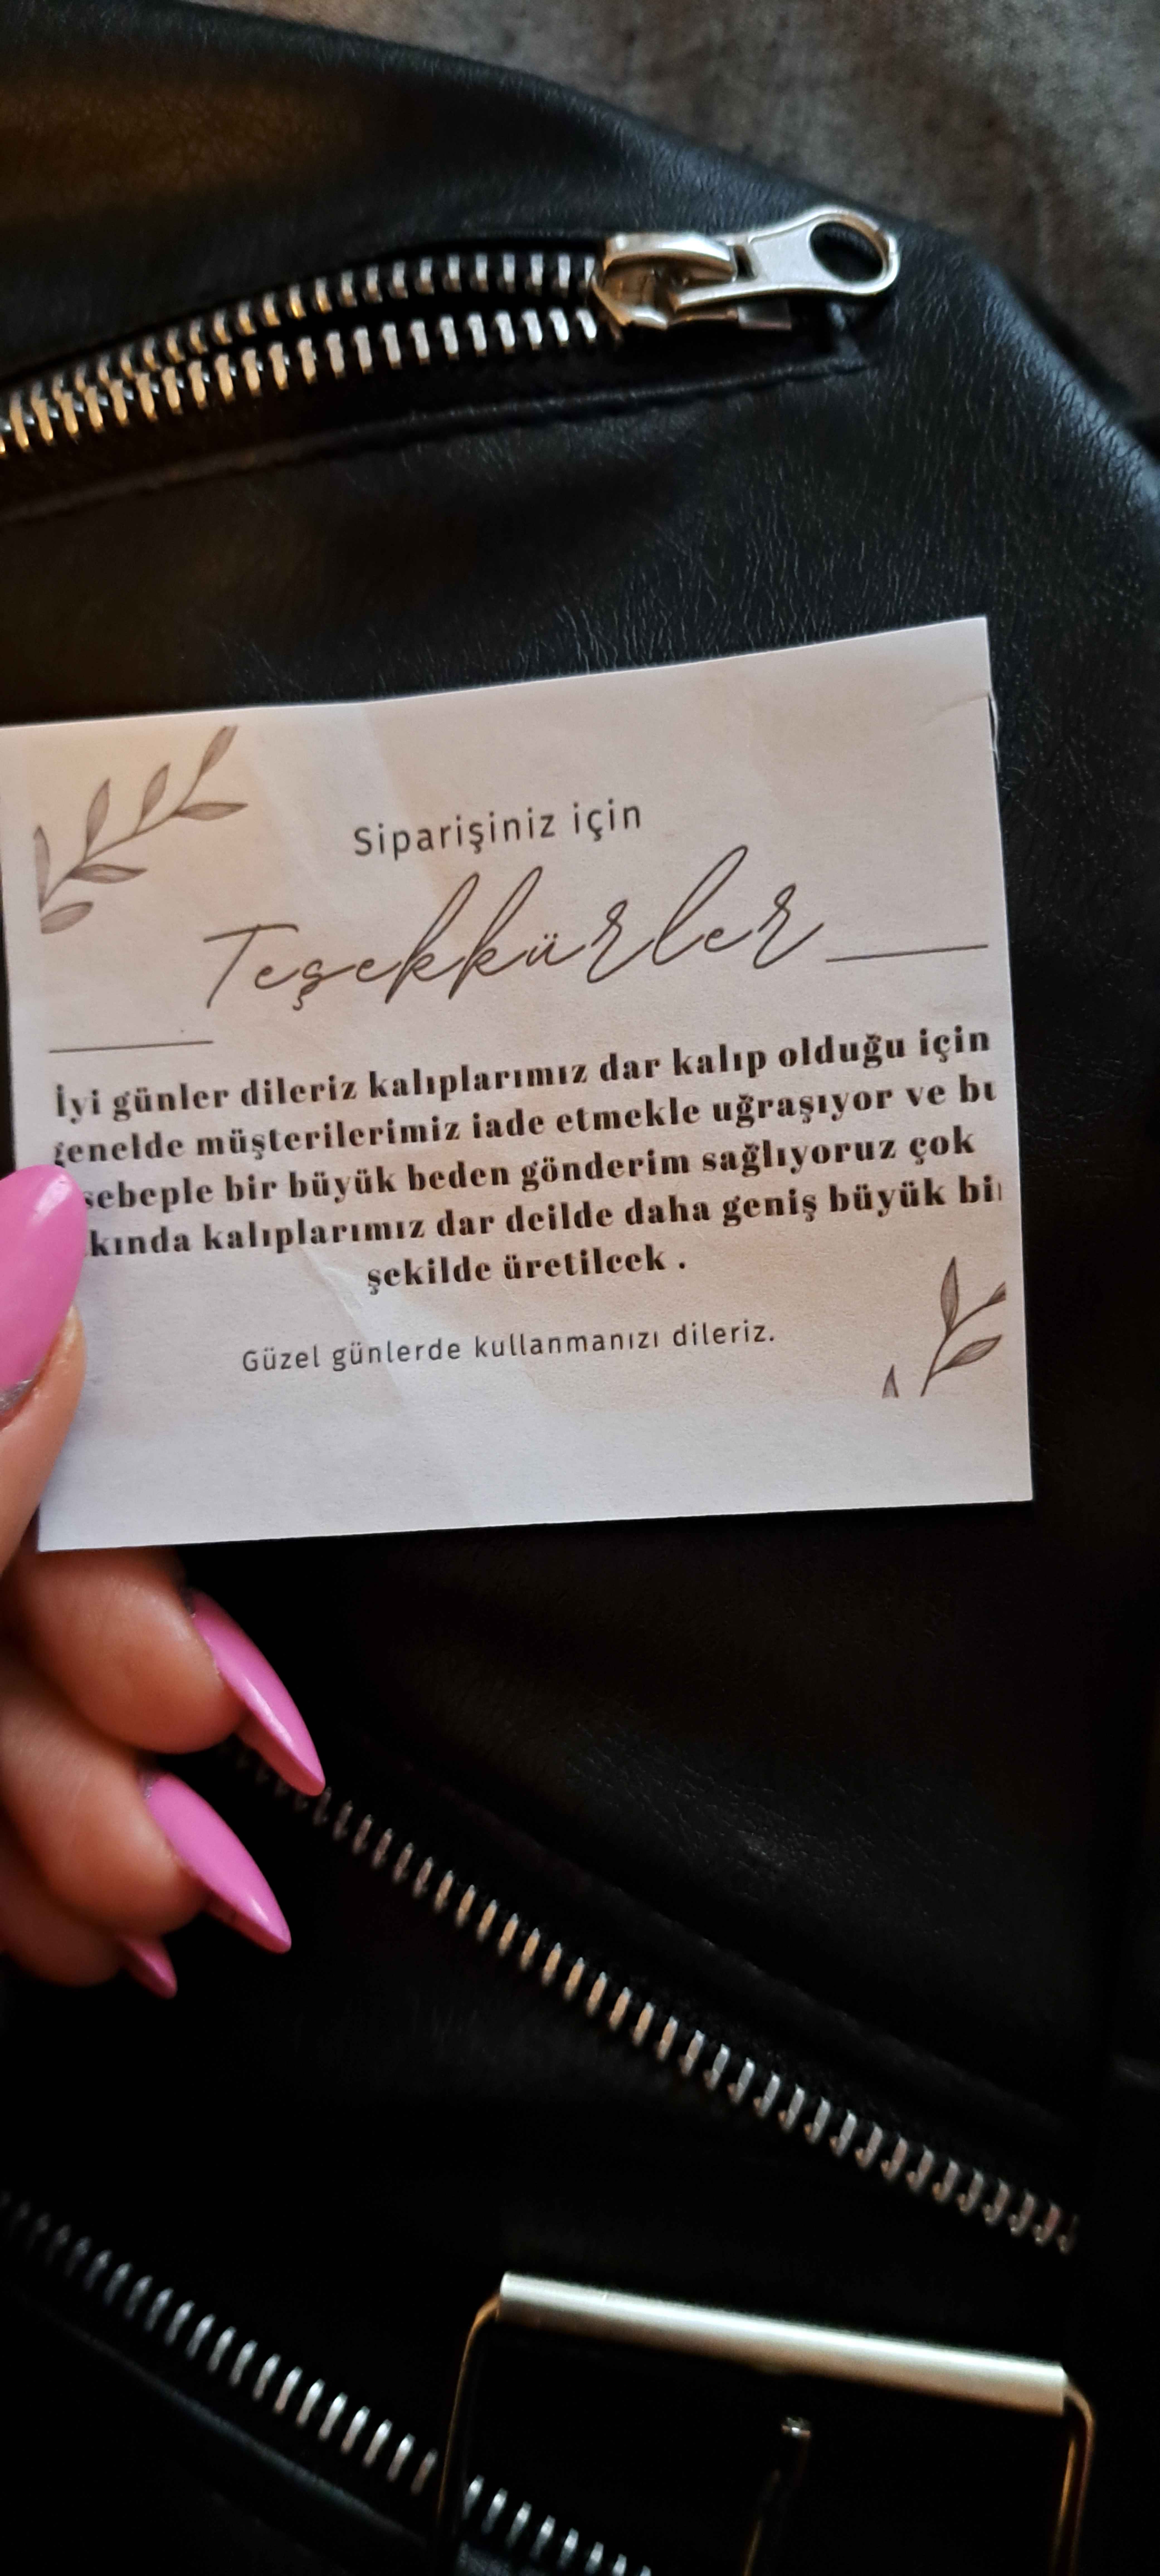 Siparişiniz için
Teşekkürler
İyi günler dileriz kalıplarımız dar kalıp olduğu için
genelde müşterilerimiz iade etmekle uğraşıyor ve bu
sebeple bir büyük beden gönderim sağlıyoruz çok
kında kalıplarımız dar deilde daha geniş büyük bir
şekilde üretilcek .
Güzel günlerde kullanmanızı dileriz.